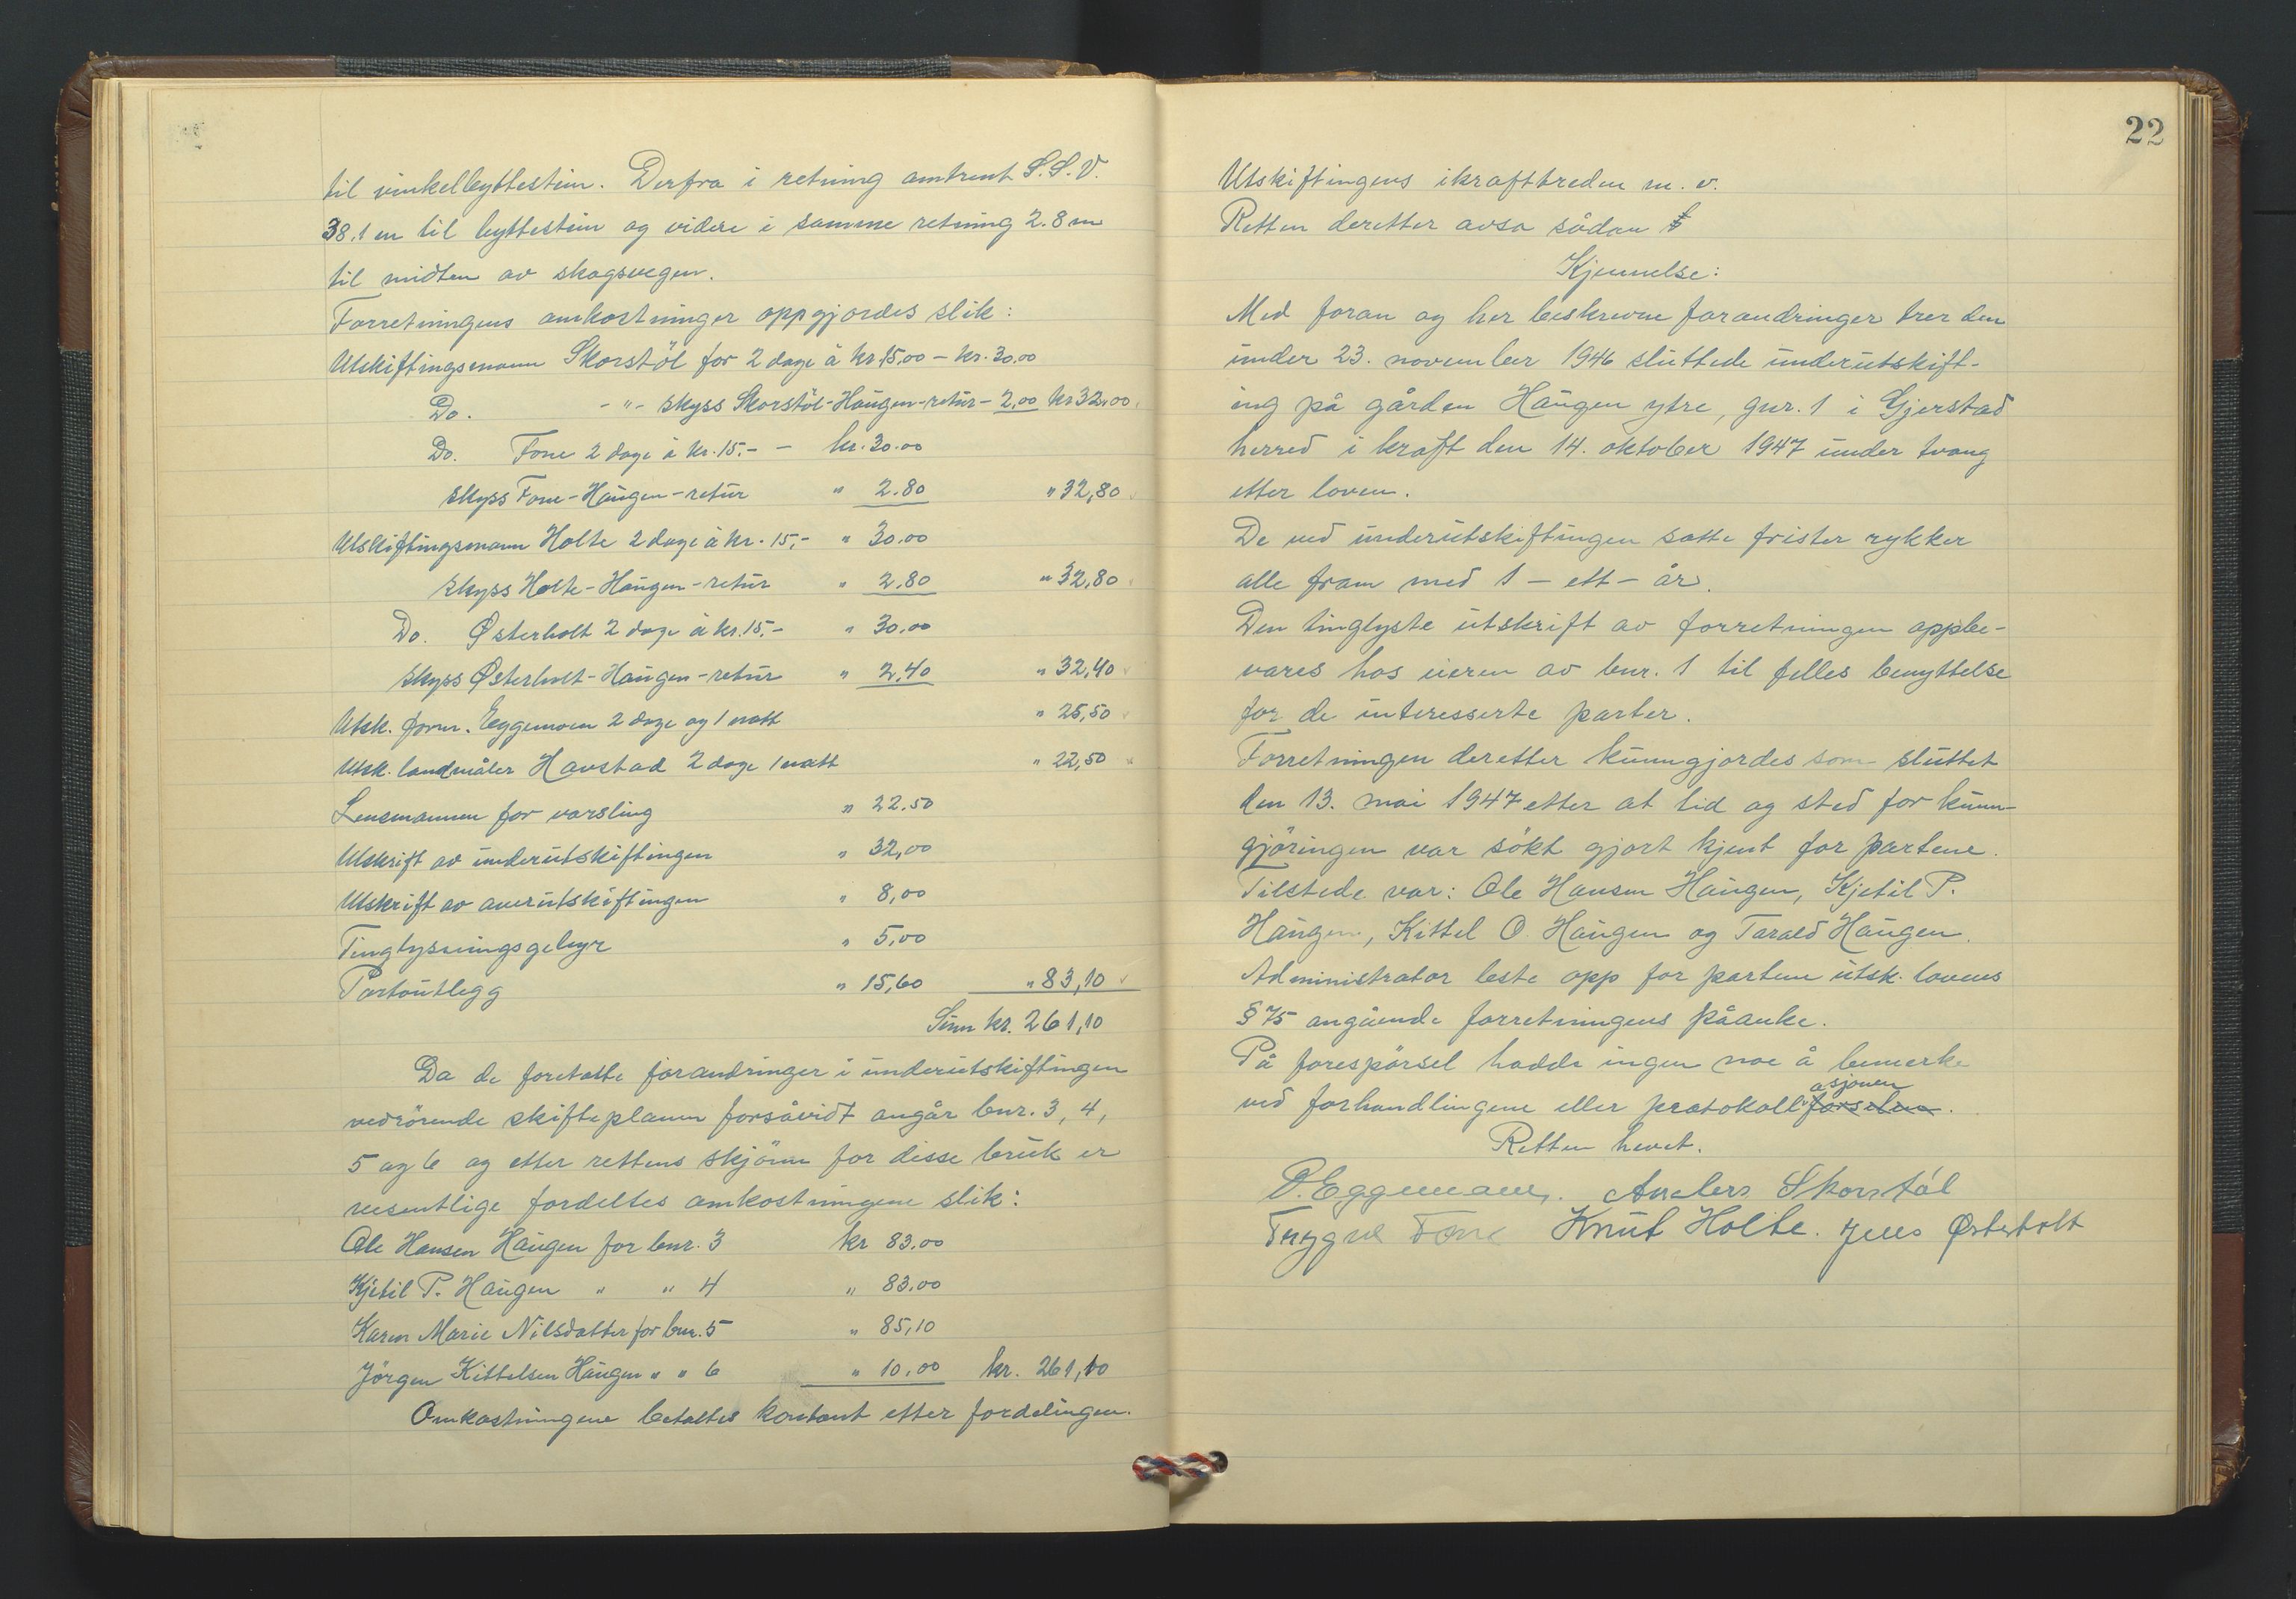 til vinkelbyttestein. Derfra i retning omtrent S.S.V.
38.1 m til byttestein og videre i samme retning 2.8 m
til midten av skogsvegen.
Forretningens omkostninger oppgjordes slik:
Utskiftingsmann Skorstöl for 2 dage à kr 15,00 – kr. 30,00
Do. - " - skyss Skorstöl-Haugen-retur - 2,00 kr 32,00
Do. Fone 2 dage à kr. 15.- - kr. 30.00
skyss Fone-Haugen-retur " 2.80 " 32,80
Utskiftingsmann Holte 2 dage à kr. 15,- " 30.00
skyss Holte-Haugen-retur " 2,80 " 32,80
Do. Østerholt 2 dage à kr. 15,- " 30,00
skyss Østerholt-Haugen-retur " 2,40 " 32,40
Utsk. form. Eggemoen 2 dage og 1 natt " 25,50
Utsk. landmåler Havstad 2 dage 1 natt " 22,50
Lensmannen for varsling " 22.50
Utskrift av underutskiftingen " 32,00
Utskrift av overutskiftingen " 8,00
Tinglysningsgebyr " 5,00
Portoutlegg " 15,60 " 83,10
Sum kr. 261,10
Da de foretatte forandringer i underutskiftingen
vedrörende skifteplanen forsåvidt angår bnr. 3, 4,
5 og 6 og etter rettens skjönn for disse bruk er
vesentlige fordeltes omkostningene slik:
Ole Hansen Haugen for bnr. 3 kr 83.00
Kjetil P. Haugen " " 4 " 83.00
Karen Marie Nilsdatter for bnr. 5 " 85,10
Jörgen Kittelsen Haugen " " 6 " 10.00 kr. 261,10
Omkostningene betaltes kontant etter fordelingen.
22
Utskiftingens ikrafttreden m. v.
Retten deretter avsa sådan
Kjennelse:
Med foran og her beskrevne forandringer trer den
under 23. november 1946 sluttede underutskift-
ing på gården Haugen ytre, gnr. 1 i Gjerstad
herred i kraft den 14. oktober 1947 under tvang
etter loven.
De ved underutskiftingen satte frister rykker
alle fram med 1 – ett – år.
Den tinglyste utskrift av forretningen oppbe-
vares hos eieren av bnr. 1 til felles benyttelse
for de interesserte parter.
Forretningen deretter kunngjordes som sluttet
den 13. mai 1947 etter at tid og sted for kunn-
gjöringen var sökt gjort kjent for partene.
Tilstede var: Ole Hansen Haugen, Kjetil P.
Haugen, Kittel O. Haugen og Tarald Haugen.
Administrator leste opp for partene utsk. lovens
§ 75 angående forretningens påanke.
På forespörsel hadde ingen noe å bemerke
asjonen
ved forhandlingene eller protokoll förselen.
Retten hevet.
O. Eggemoen. Anders Skorstöl
Trygve Fone Knut Holte. Jens Østerholt